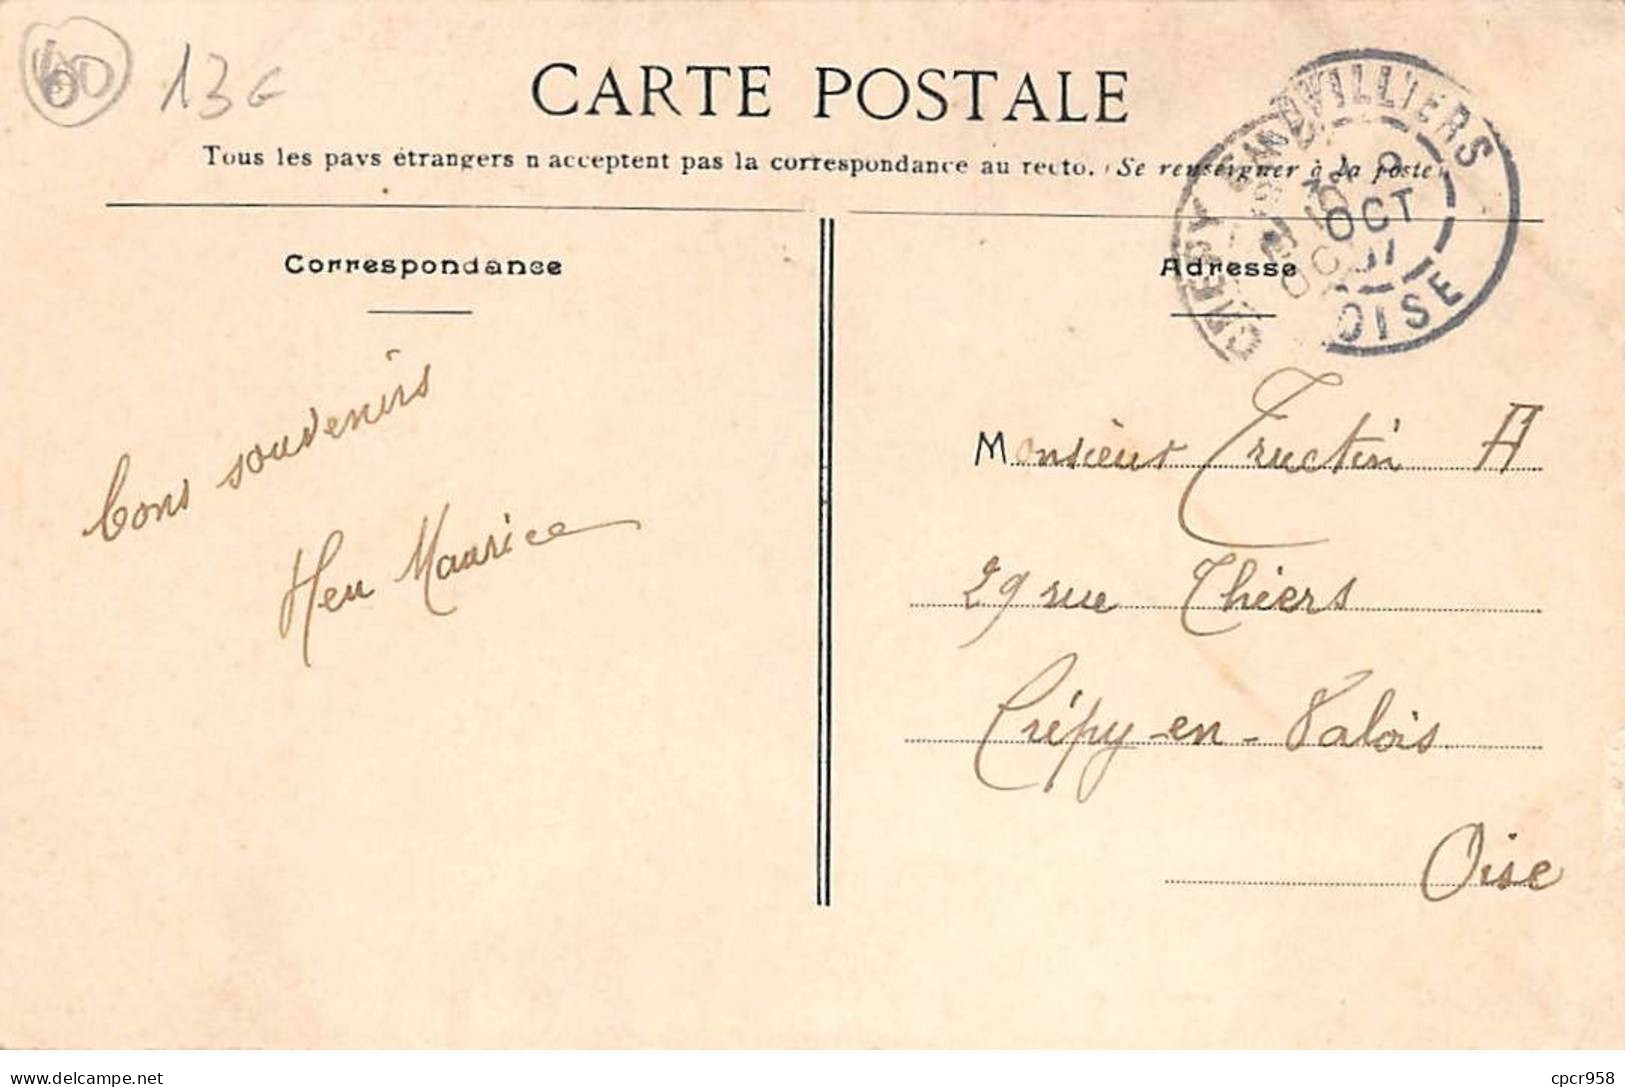 60 13 €
CARTE POSTALE
Tous les pays étrangers n'acceptent pas la correspondance au recto. (Se renseigner à la poste)
Correspondance
Adresse
OCT
OISE
bons souvenirs
Heu Maurice
Monsieur Tructin A
29 rue Thiers
Crépy-en-Valois
Oise
delcampe.net
cpcr958